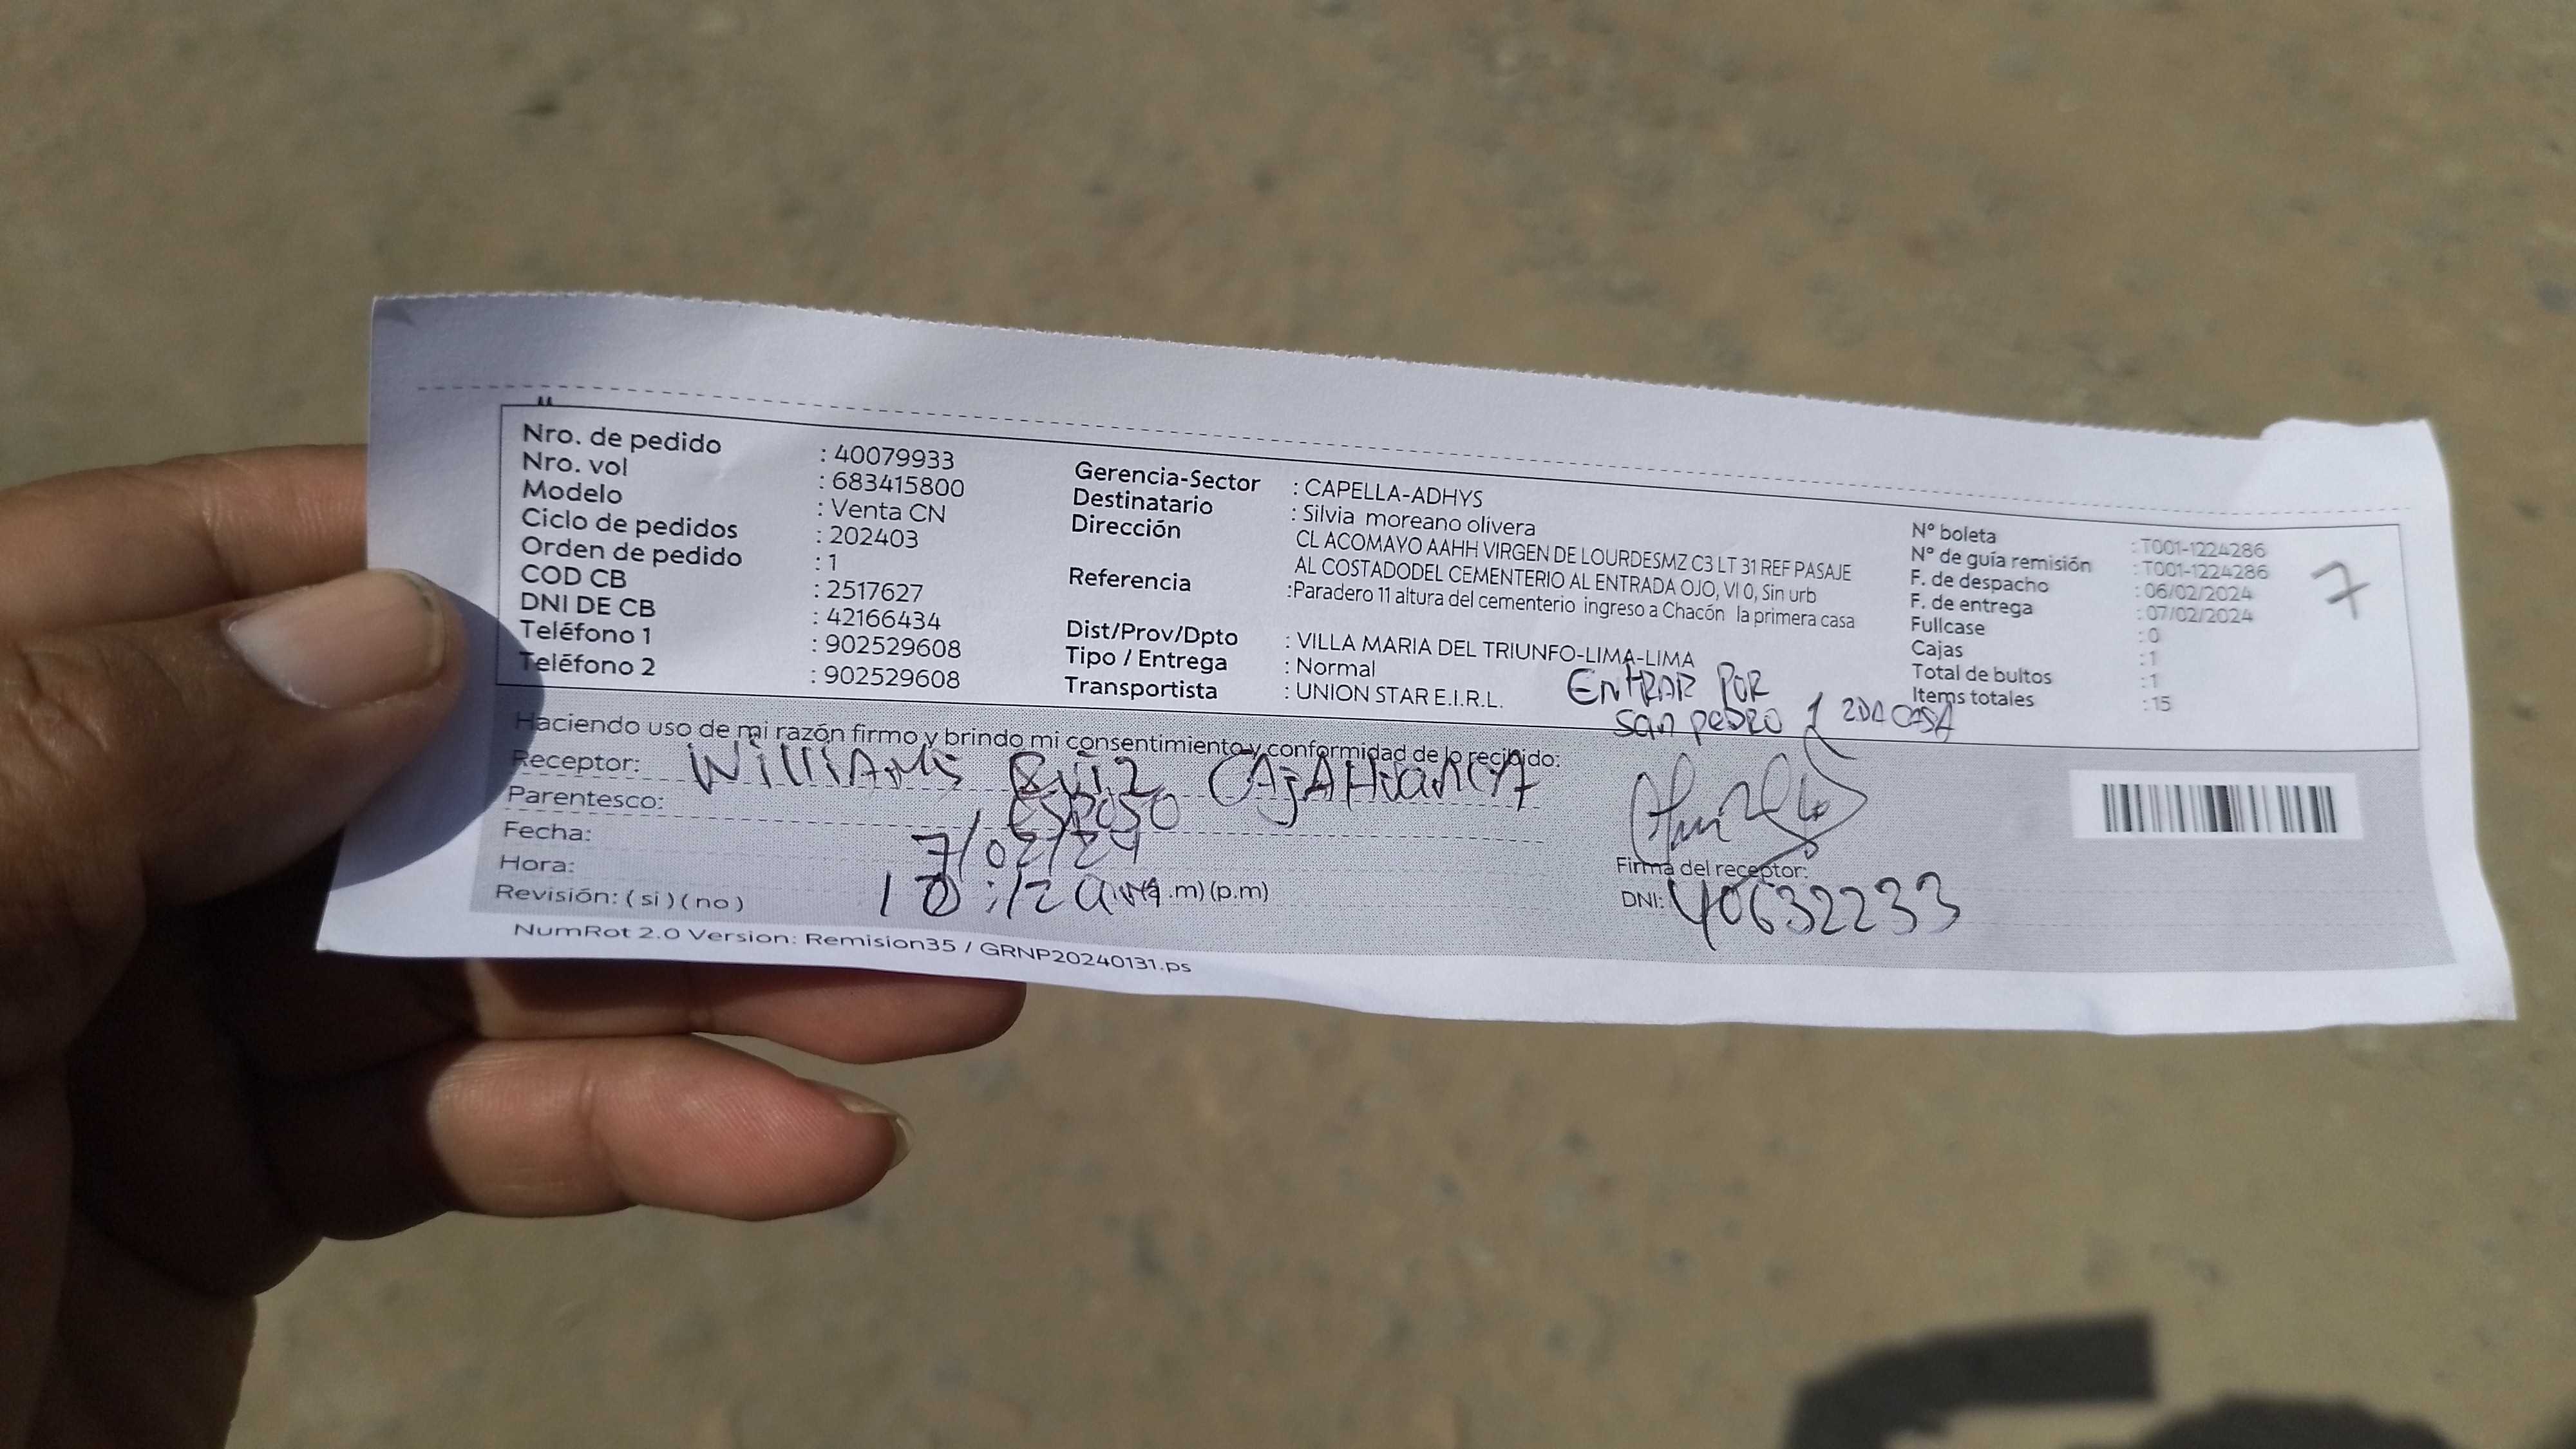 Nro. de pedido : 40079933
Nro. vol : 683415800
Modelo : Venta CN
Ciclo de pedidos : 202403
Orden de pedido : 1
COD CB : 2517627
DNI DE CB : 42166434
Teléfono 1 : 902529608
Teléfono 2 : 902529608
Gerencia-Sector : CAPELLA-ADHYS
Destinatario : Silvia moreano olivera
Dirección CL ACOMAYO AAHH VIRGEN DE LOURDESMZ C3 LT 31 REF PASAJE
AL COSTADODEL CEMENTERIO AL ENTRADA OJO, VI 0, Sin urb
Referencia :Paradero 11 altura del cementerio ingreso a Chacón la primera casa
Dist/Prov/Dpto : VILLA MARIA DEL TRIUNFO-LIMA-LIMA
Tipo / Entrega : Normal
Transportista : UNION STAR E.I.R.L.
N° boleta : T001-1224286
N° de guía remisión : T001-1224286
F. de despacho : 06/02/2024
F. de entrega : 07/02/2024
Fullcase : 0
Cajas : 1
Total de bultos : 1
Items totales : 15
7
ENTRAR POR
san pedro 1 2DA CASA
Haciendo uso de mi razón firmo y brindo mi consentimiento y conformidad de lo recibido:
Receptor: Williams Ruiz CAjAHuancA
Parentesco: esposo
Fecha: 7/02/24
Hora: 10:12 am (a.m) (p.m)
Revisión: ( si ) ( no )
Firma del receptor:
DNI: 40632233
NumRot 2.0 Version: Remision35 / GRNP20240131.ps